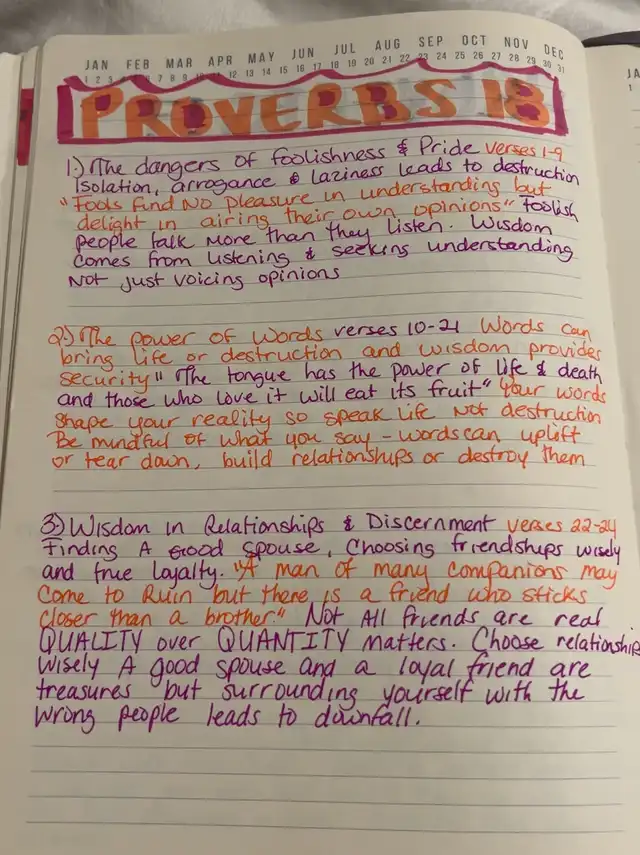 JAN FEB MAR APR MAY JUN JUL AUG SEP OCT NOV DEC
1 2 3 4 5 6 7 8 9 10 11 12 13 14 15 16 17 18 19 20 21 22 23 24 25 26 27 28 29 30 31
PROVERBS 18
1.) The dangers of foolishness & Pride verses 1-9
Isolation, arrogance & laziness leads to destruction
"Fools find NO pleasure in understanding but
delight in airing their own opinions" foolish
people talk more than they listen. Wisdom
comes from listening & seeking understanding
Not just voicing opinions
2.) The power of Words verses 10-21 Words can
bring life or destruction and wisdom provides
security" The tongue has the power of life & death
and those who love it will eat its fruit" Your words
shape your reality so speak life not destruction
Be mindful of what you say - words can uplift
or tear down, build relationships or destroy them
3.) Wisdom in Relationships & Discernment verses 22-24
Finding A Good spouse, Choosing friendships wisely
and true loyalty. "A man of many companions may
come to Ruin but there is a friend who sticks
closer than a brother." Not All friends are real
QUALITY over QUANTITY matters. Choose relationship
wisely A good spouse and a loyal friend are
treasures but surrounding yourself with the
wrong people leads to downfall.
JA
1